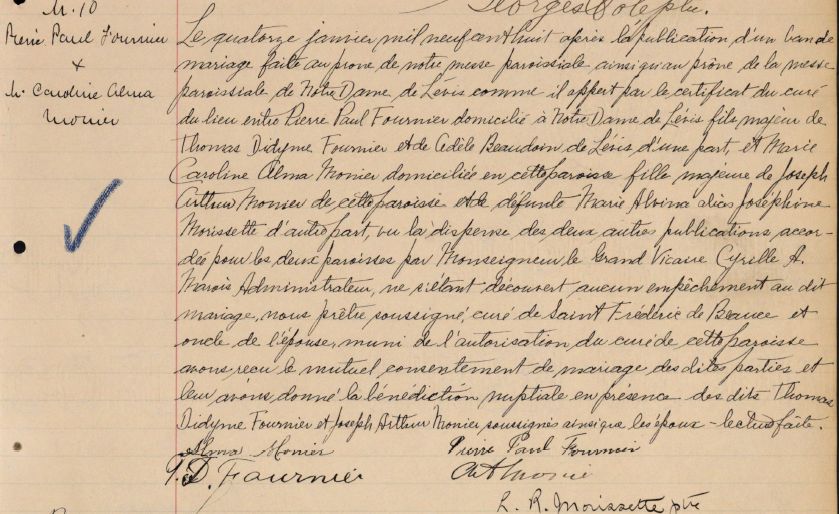 M. 10
Pierre Paul Fournier
+
M. Caroline Alma
Monier
Georges Joseph.
Le quatorze janvier mil neuf cent huit après la publication d'un ban de
mariage faite au prone de notre messe paroissiale ainsi qu'au prône de la messe
paroissiale de Notre Dame de Lévis comme il appert par le certificat du curé
du lieu entre Pierre Paul Fournier domicilié à Notre Dame de Lévis fils majeur de
Thomas Didyme Fournier et de Adèle Beaudoin de Lévis d'une part, et Marie
Caroline Alma Monier domiciliée en cette paroisse fille majeure de Joseph
Arthur Monier de cette paroisse et de défunte Marie Alvina alias Joséphine
Morissette d'autre part, vu la dispense des deux autres publications accor-
dée pour les deux paroisses par Monseigneur le Grand Vicaire Cyrille A.
Marois Administrateur, ne s'étant découvert aucun empêchement au dit
mariage, nous prêtre soussigné, curé de Saint Frédéric de Beauce et
oncle de l'épouse, muni de l'autorisation du curé de cette paroisse
avons reçu le mutuel consentement de mariage des dites parties et
leur avons donné la bénédiction nuptiale en présence des dits Thomas
Didyme Fournier et Joseph Arthur Monier soussignés ainsi que les époux - lecture faite.
Alma Monier
Pierre Paul Fournier
T. D. Fournier
Art Monier
L. R. Morissette ptre